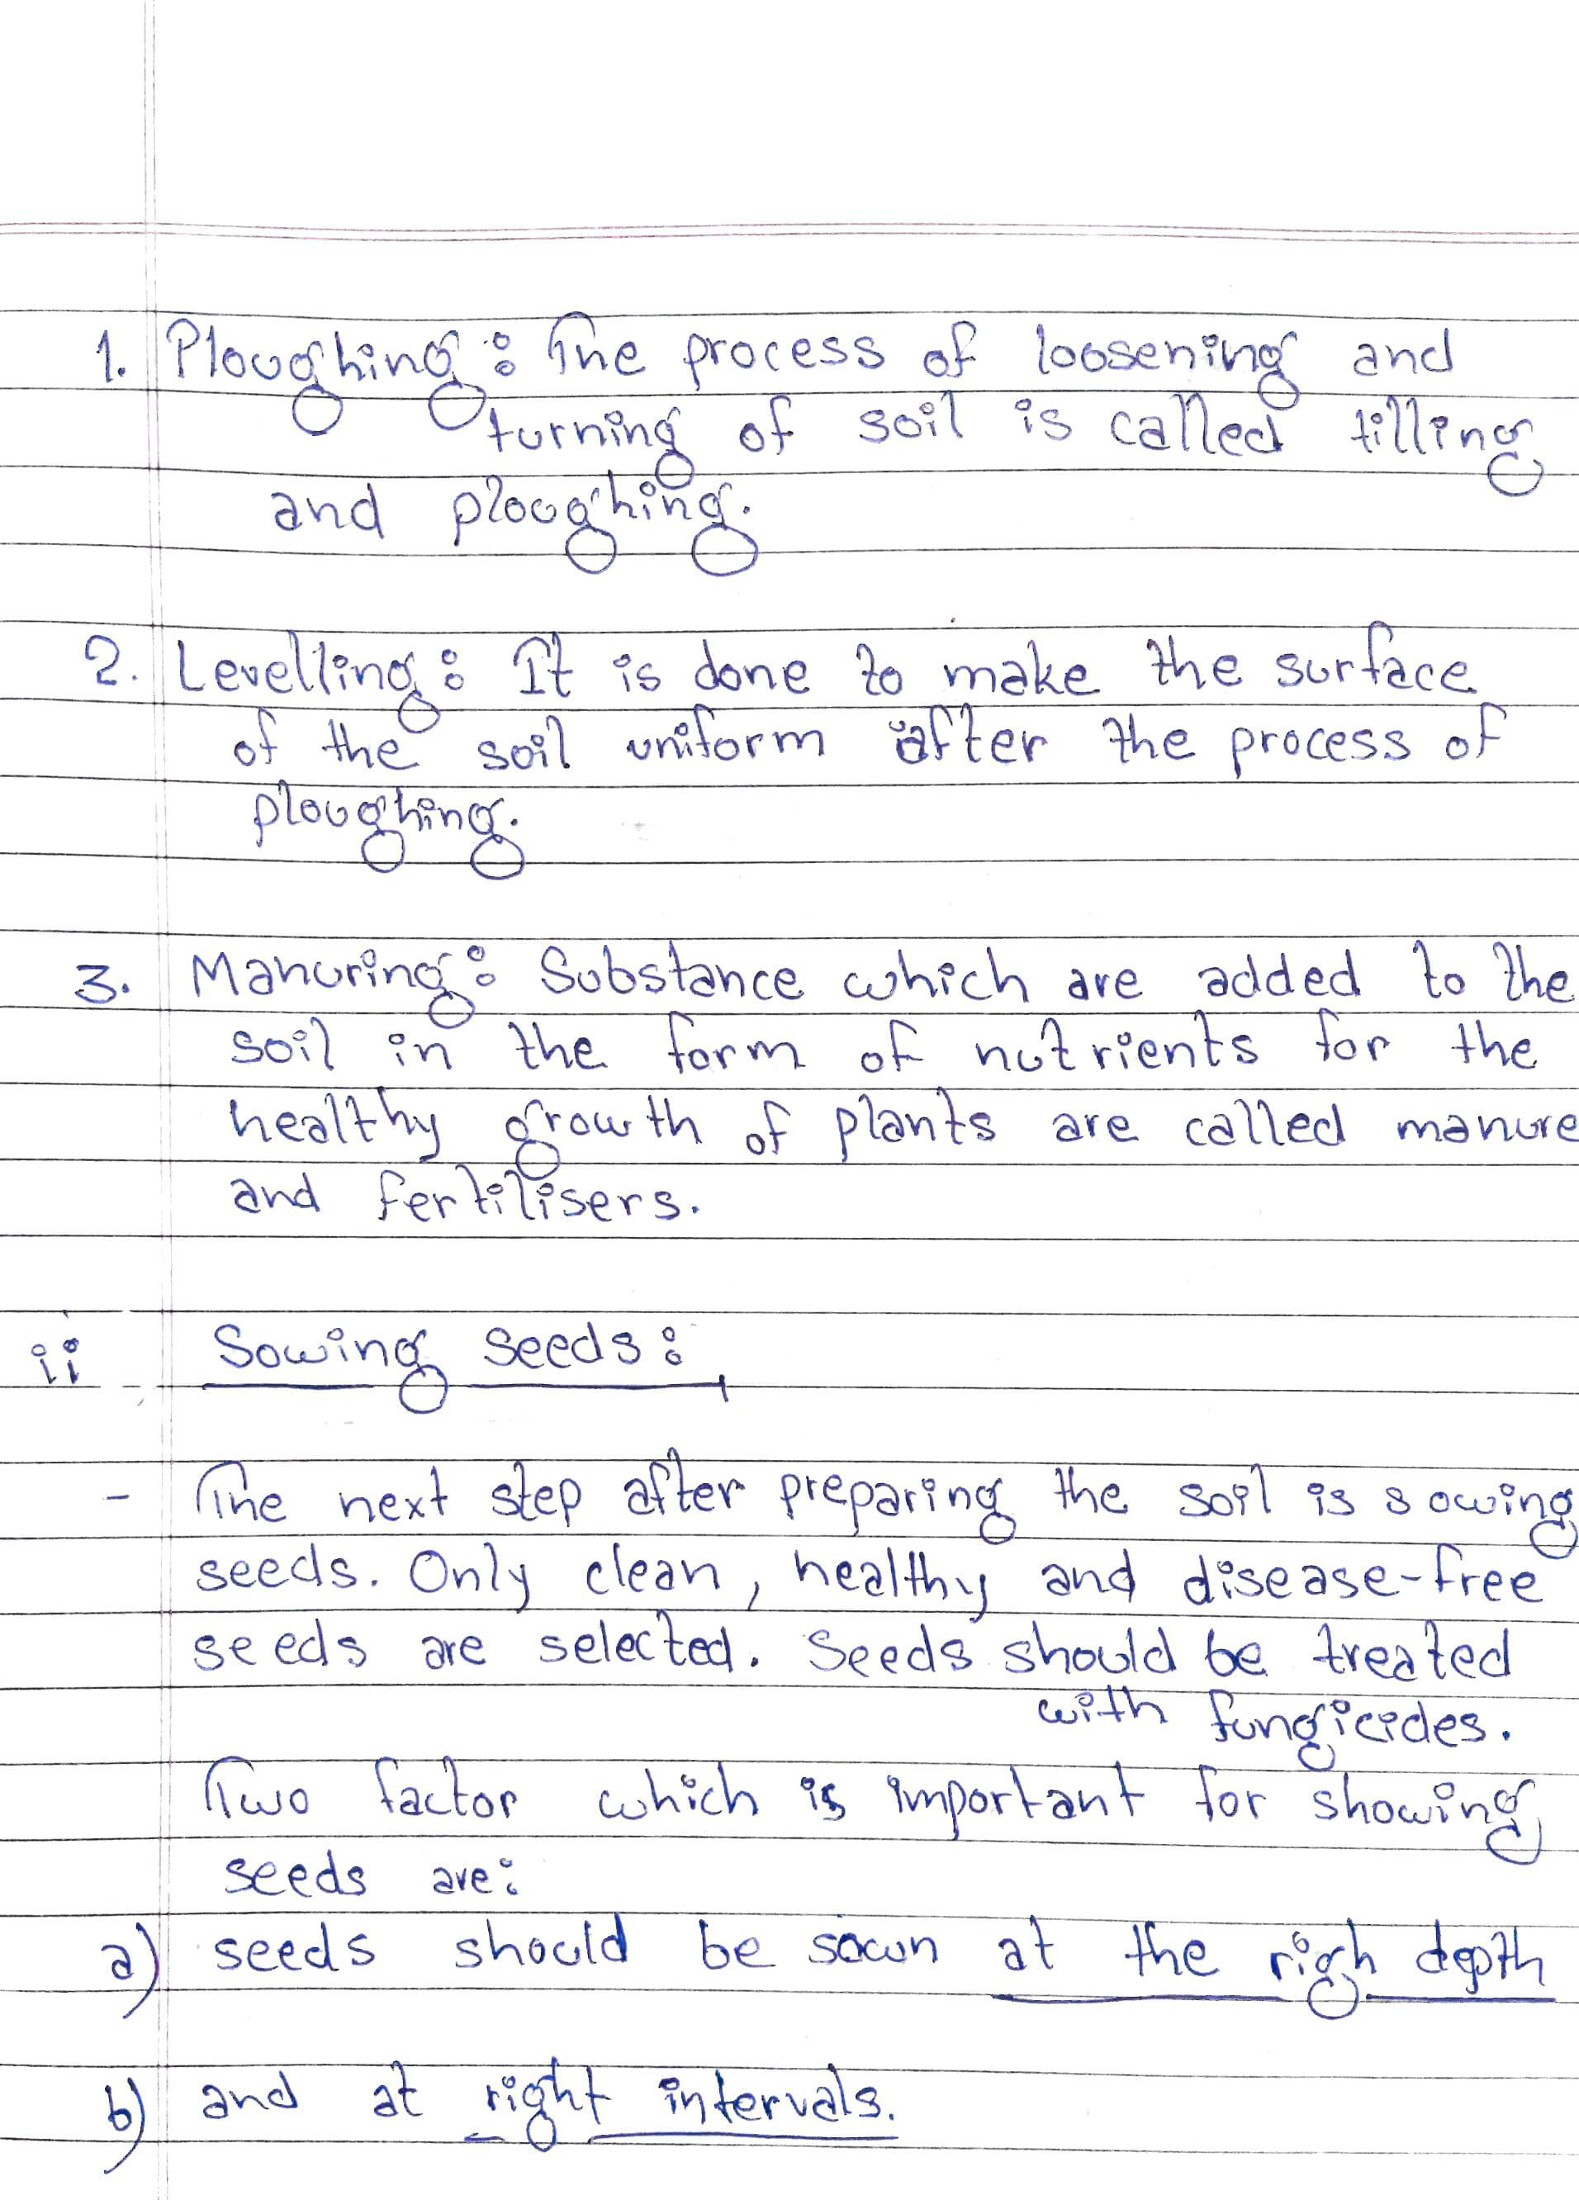 1. Ploughing: The process of loosening and
turning of soil is called tilling
and ploughing.
2. Levelling: It is done to make the surface
of the soil uniform after the process of
ploughing.
3. Manuring: Substance which are added to the
soil in the form of nutrients for the
healthy growth of plants are called manure
and fertilisers.
ii Sowing seeds:
- The next step after preparing the soil is sowing
seeds. Only clean, healthy and disease-free
seeds are selected. Seeds should be treated
with fungicides.
Two factor which is important for showing
seeds are:
a) seeds should be sown at the righ depth
b) and at right intervals.